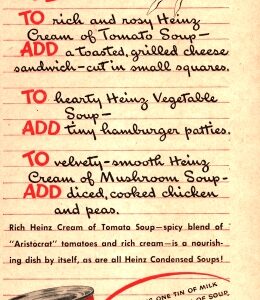 TO rich and rosy Heinz
Cream of Tomato Soup—
ADD a toasted, grilled cheese
sandwich—cut in small squares.
TO hearty Heinz Vegetable
Soup—
ADD tiny hamburger patties.
TO velvety-smooth Heinz
Cream of Mushroom Soup—
ADD diced, cooked chicken
and peas.
Rich Heinz Cream of Tomato Soup—spicy blend of
"Aristocrat" tomatoes and rich cream—is a nourish-
ing dish by itself, as are all Heinz Condensed Soups!
ONE TIN OF MILK
OF SOUP